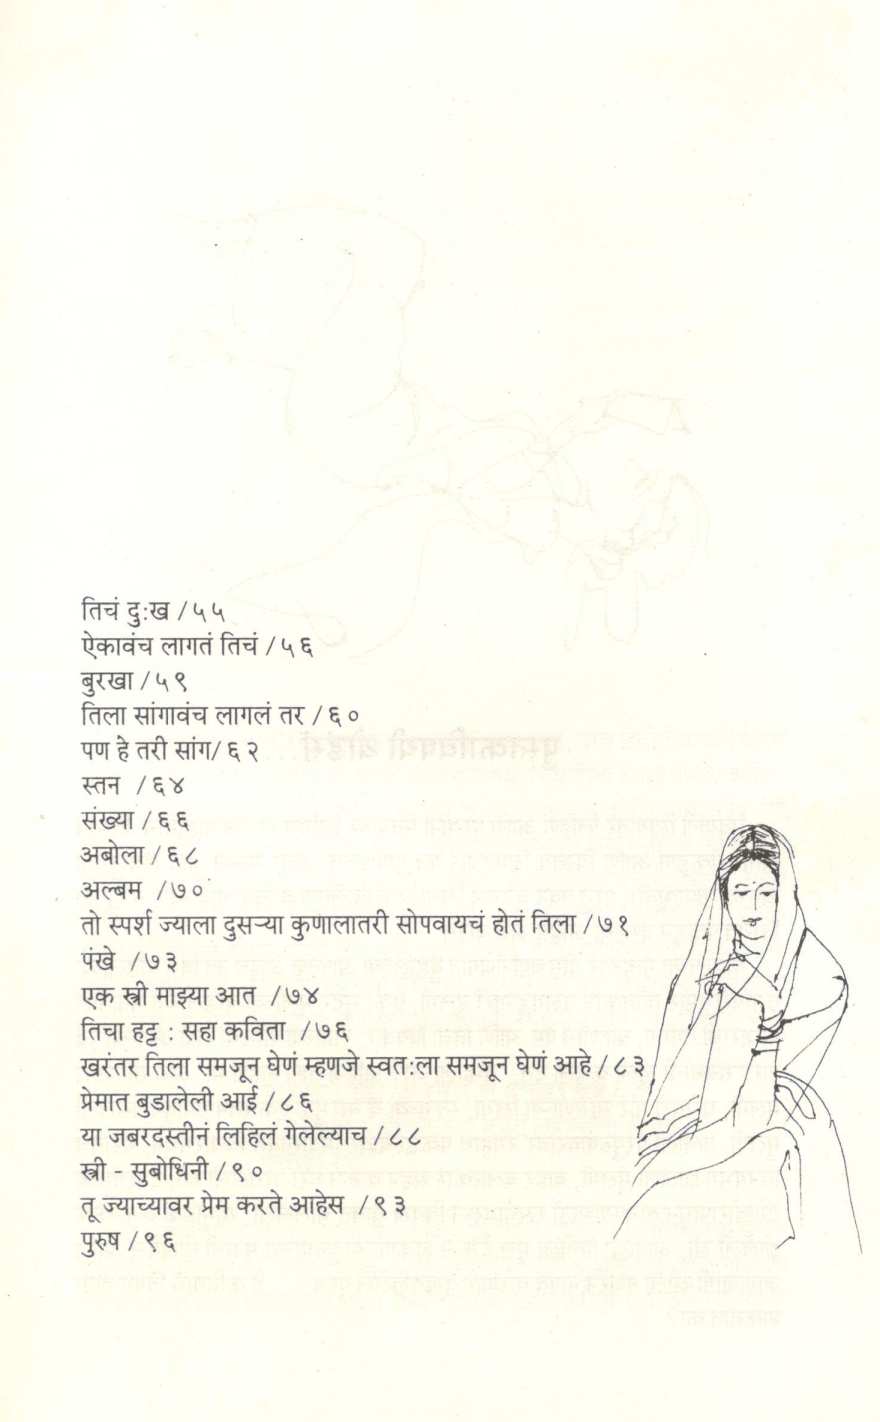 तिचं दुःख /५५
ऐकावंच लागतं तिचं /५६
बुरखा /५९
तिला सांगावंच लागलं तर /६०
पण हे तरी सांग/ ६२
स्तन /६४
संख्या /६६
अबोला /६८
अल्बम /७०
तो स्पर्श ज्याला दुसऱ्या कुणालातरी सोपवायचं होतं तिला /७१
पंखे /७३
एक स्त्री माझ्या आत /७४
तिचा हट्ट : सहा कविता /७६
खरंतर तिला समजून घेणं म्हणजे स्वतःला समजून घेणं आहे /८३
प्रेमात बुडालेली आई /८६
या जबरदस्तीनं लिहिलं गेलेल्याच /८८
स्त्री - सुबोधिनी /९०
तू ज्याच्यावर प्रेम करते आहेस /९३
पुरुष /९६